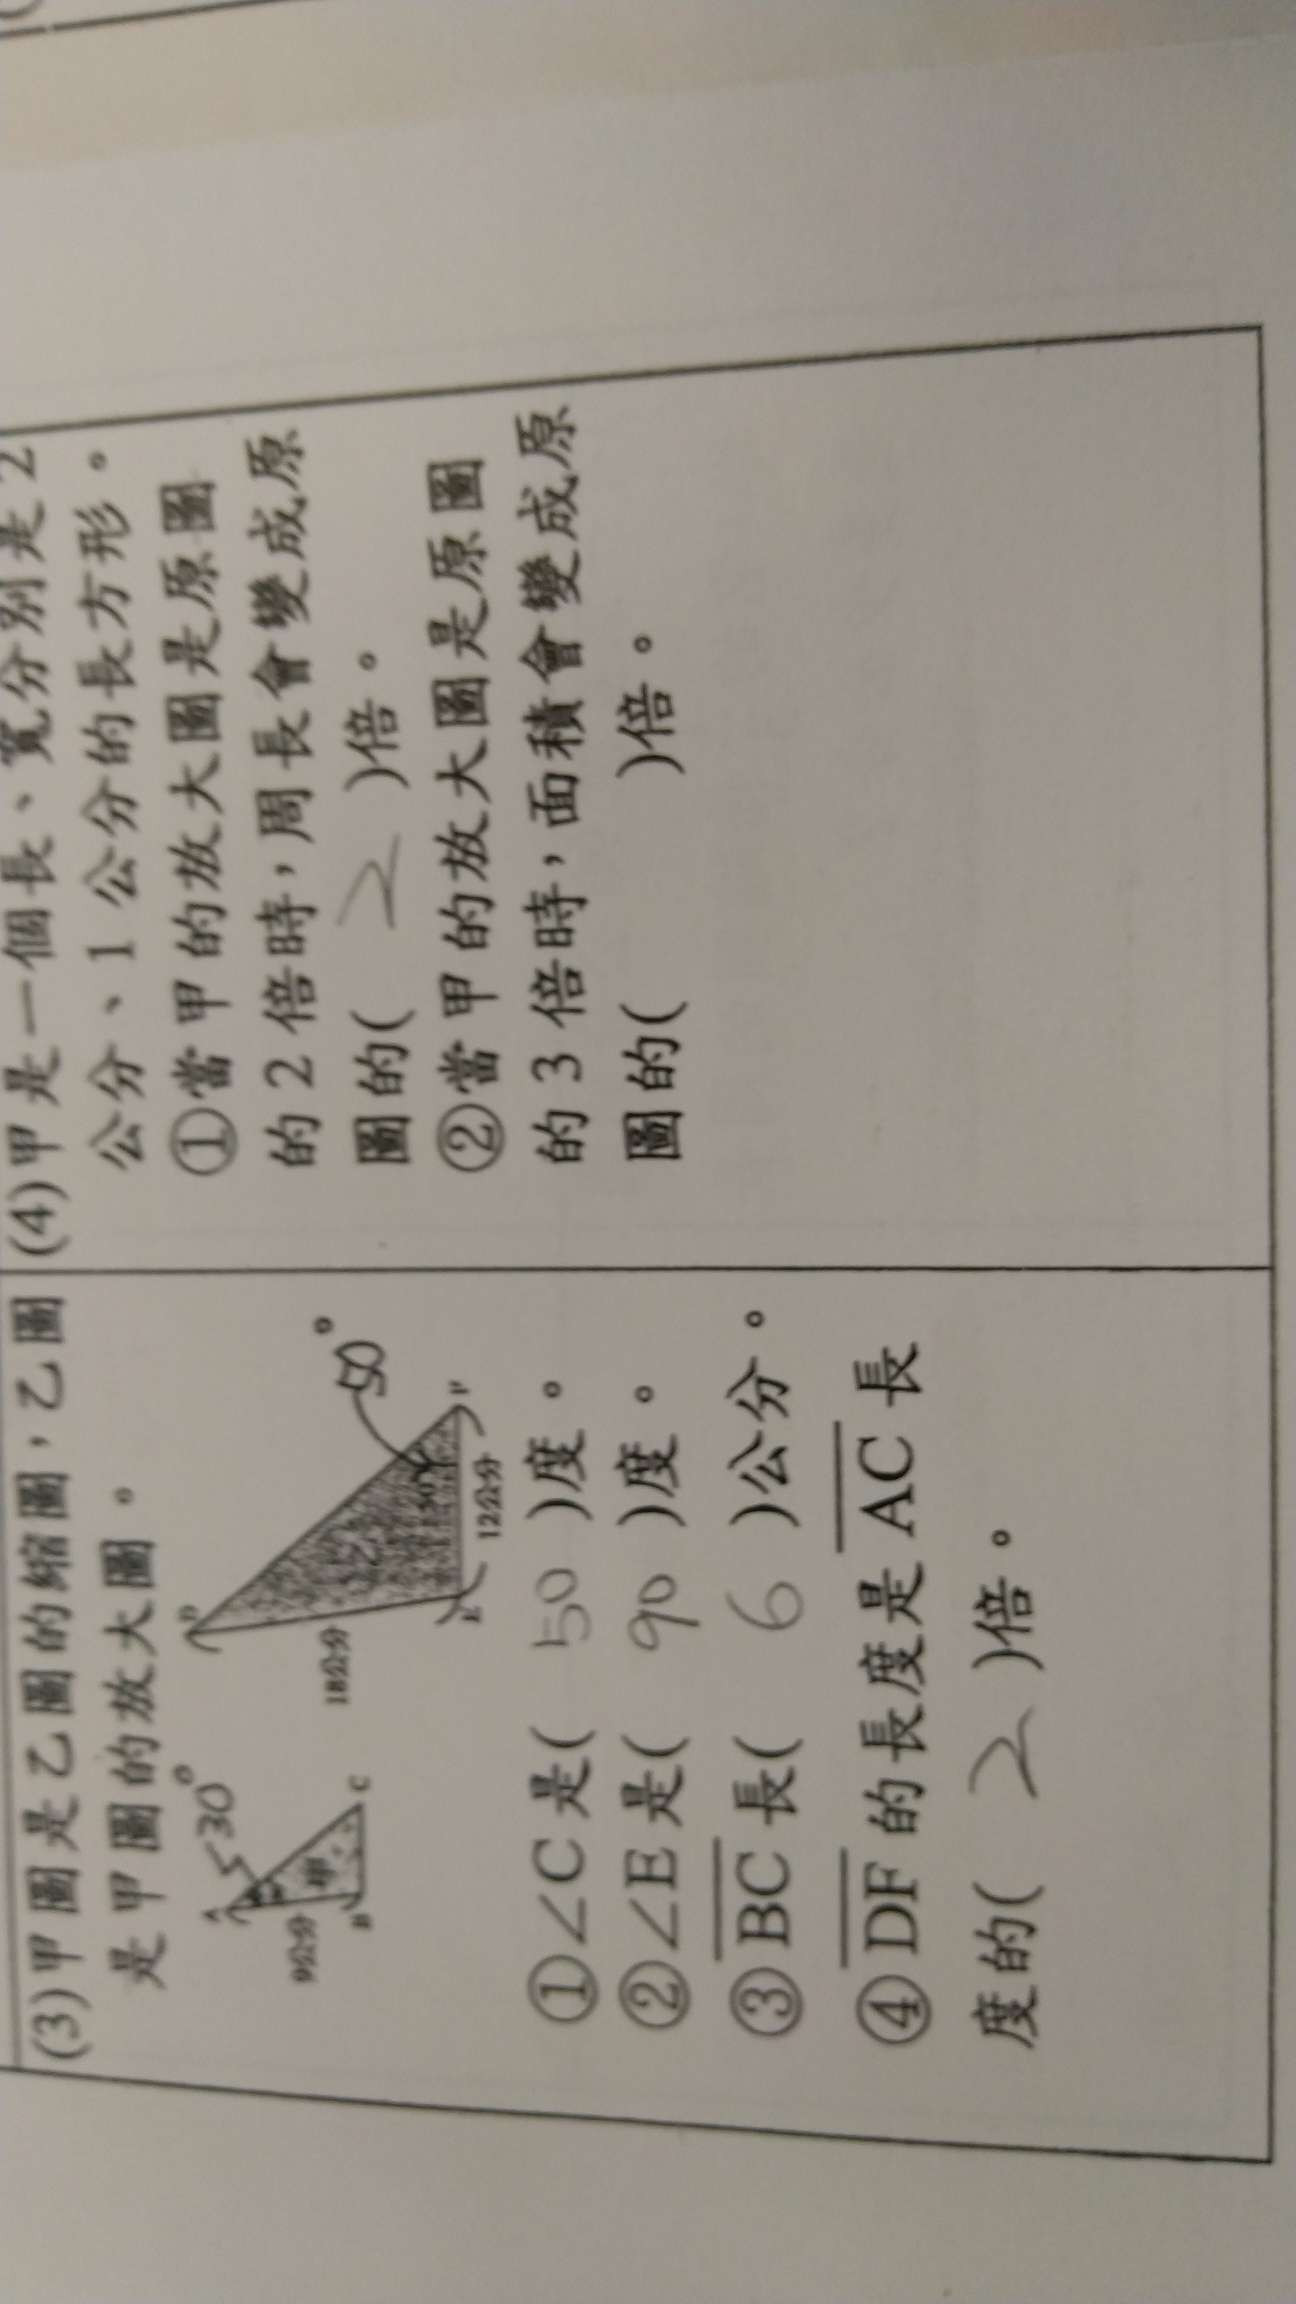 (3)甲圖是乙圖的縮圖，乙圖
是甲圖的放大圖。
A
30°
9公分
甲
B
C
D
18公分
乙
50°
50°
E
12公分
F
①∠C是( 50 )度。
②∠E是( 90 )度。
③BC長( 6 )公分。
④DF的長度是AC長
度的( 2 )倍。
(4)甲是一個長、寬分別是2
公分、1公分的長方形。
①當甲的放大圖是原圖
的2倍時，周長會變成原
圖的( 2 )倍。
②當甲的放大圖是原圖
的3倍時，面積會變成原
圖的( )倍。